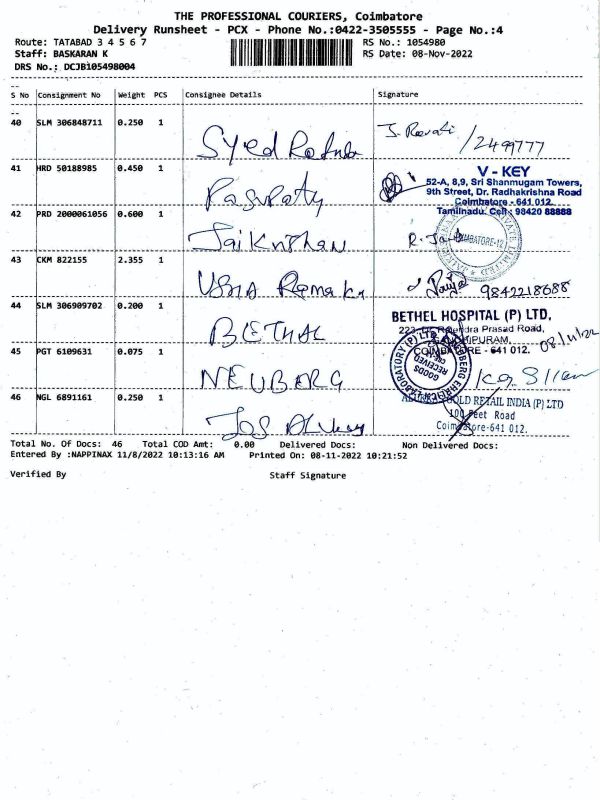 THE PROFESSIONAL COURIERS, Coimbatore
Delivery Runsheet - PCX - Phone No.:0422-3505555 - Page No.:4
Route: TATABAD 3 4 5 6 7
RS No.: 1054980
Staff: BASKARAN K
RS Date: 08-Nov-2022
DRS No.: DCJB105498004
S No Consignment No Weight PCS Consignee Details Signature
40 SLM 306848711 0.250 1
Syed
J. Revati /2499777
41 HRD 50188985 0.450 1
Pasupaty
V - KEY
52-A, 8,9, Sri Shanmugam Towers,
9th Street, Dr. Radhakrishna Road
Coimbatore - 641 012.
Tamilnadu. Cell : 98420 88888
42 PRD 2000061056 0.600 1
COIMBATORE-12
43 CKM 822155 2.355 1
USHA
9842218688
44 SLM 306909702 0.200 1
BETHAL
BETHEL HOSPITAL (P) LTD,
Prasad Road,
641 012.
08/11/22
45 PGT 6109631 0.075 1
NEUBERG
GOODS
RECEIVED
46 NGL 6891161 0.250 1
Jos Alukas
GOLD RETAIL INDIA (P) LTD
100 Feet Road
Coimbatore-641 012.
Total No. Of Docs: 46 Total COD Amt: 0.00 Delivered Docs: Non Delivered Docs:
Entered By :NAPPINAX 11/8/2022 10:13:16 AM Printed On: 08-11-2022 10:21:52
Verified By Staff Signature